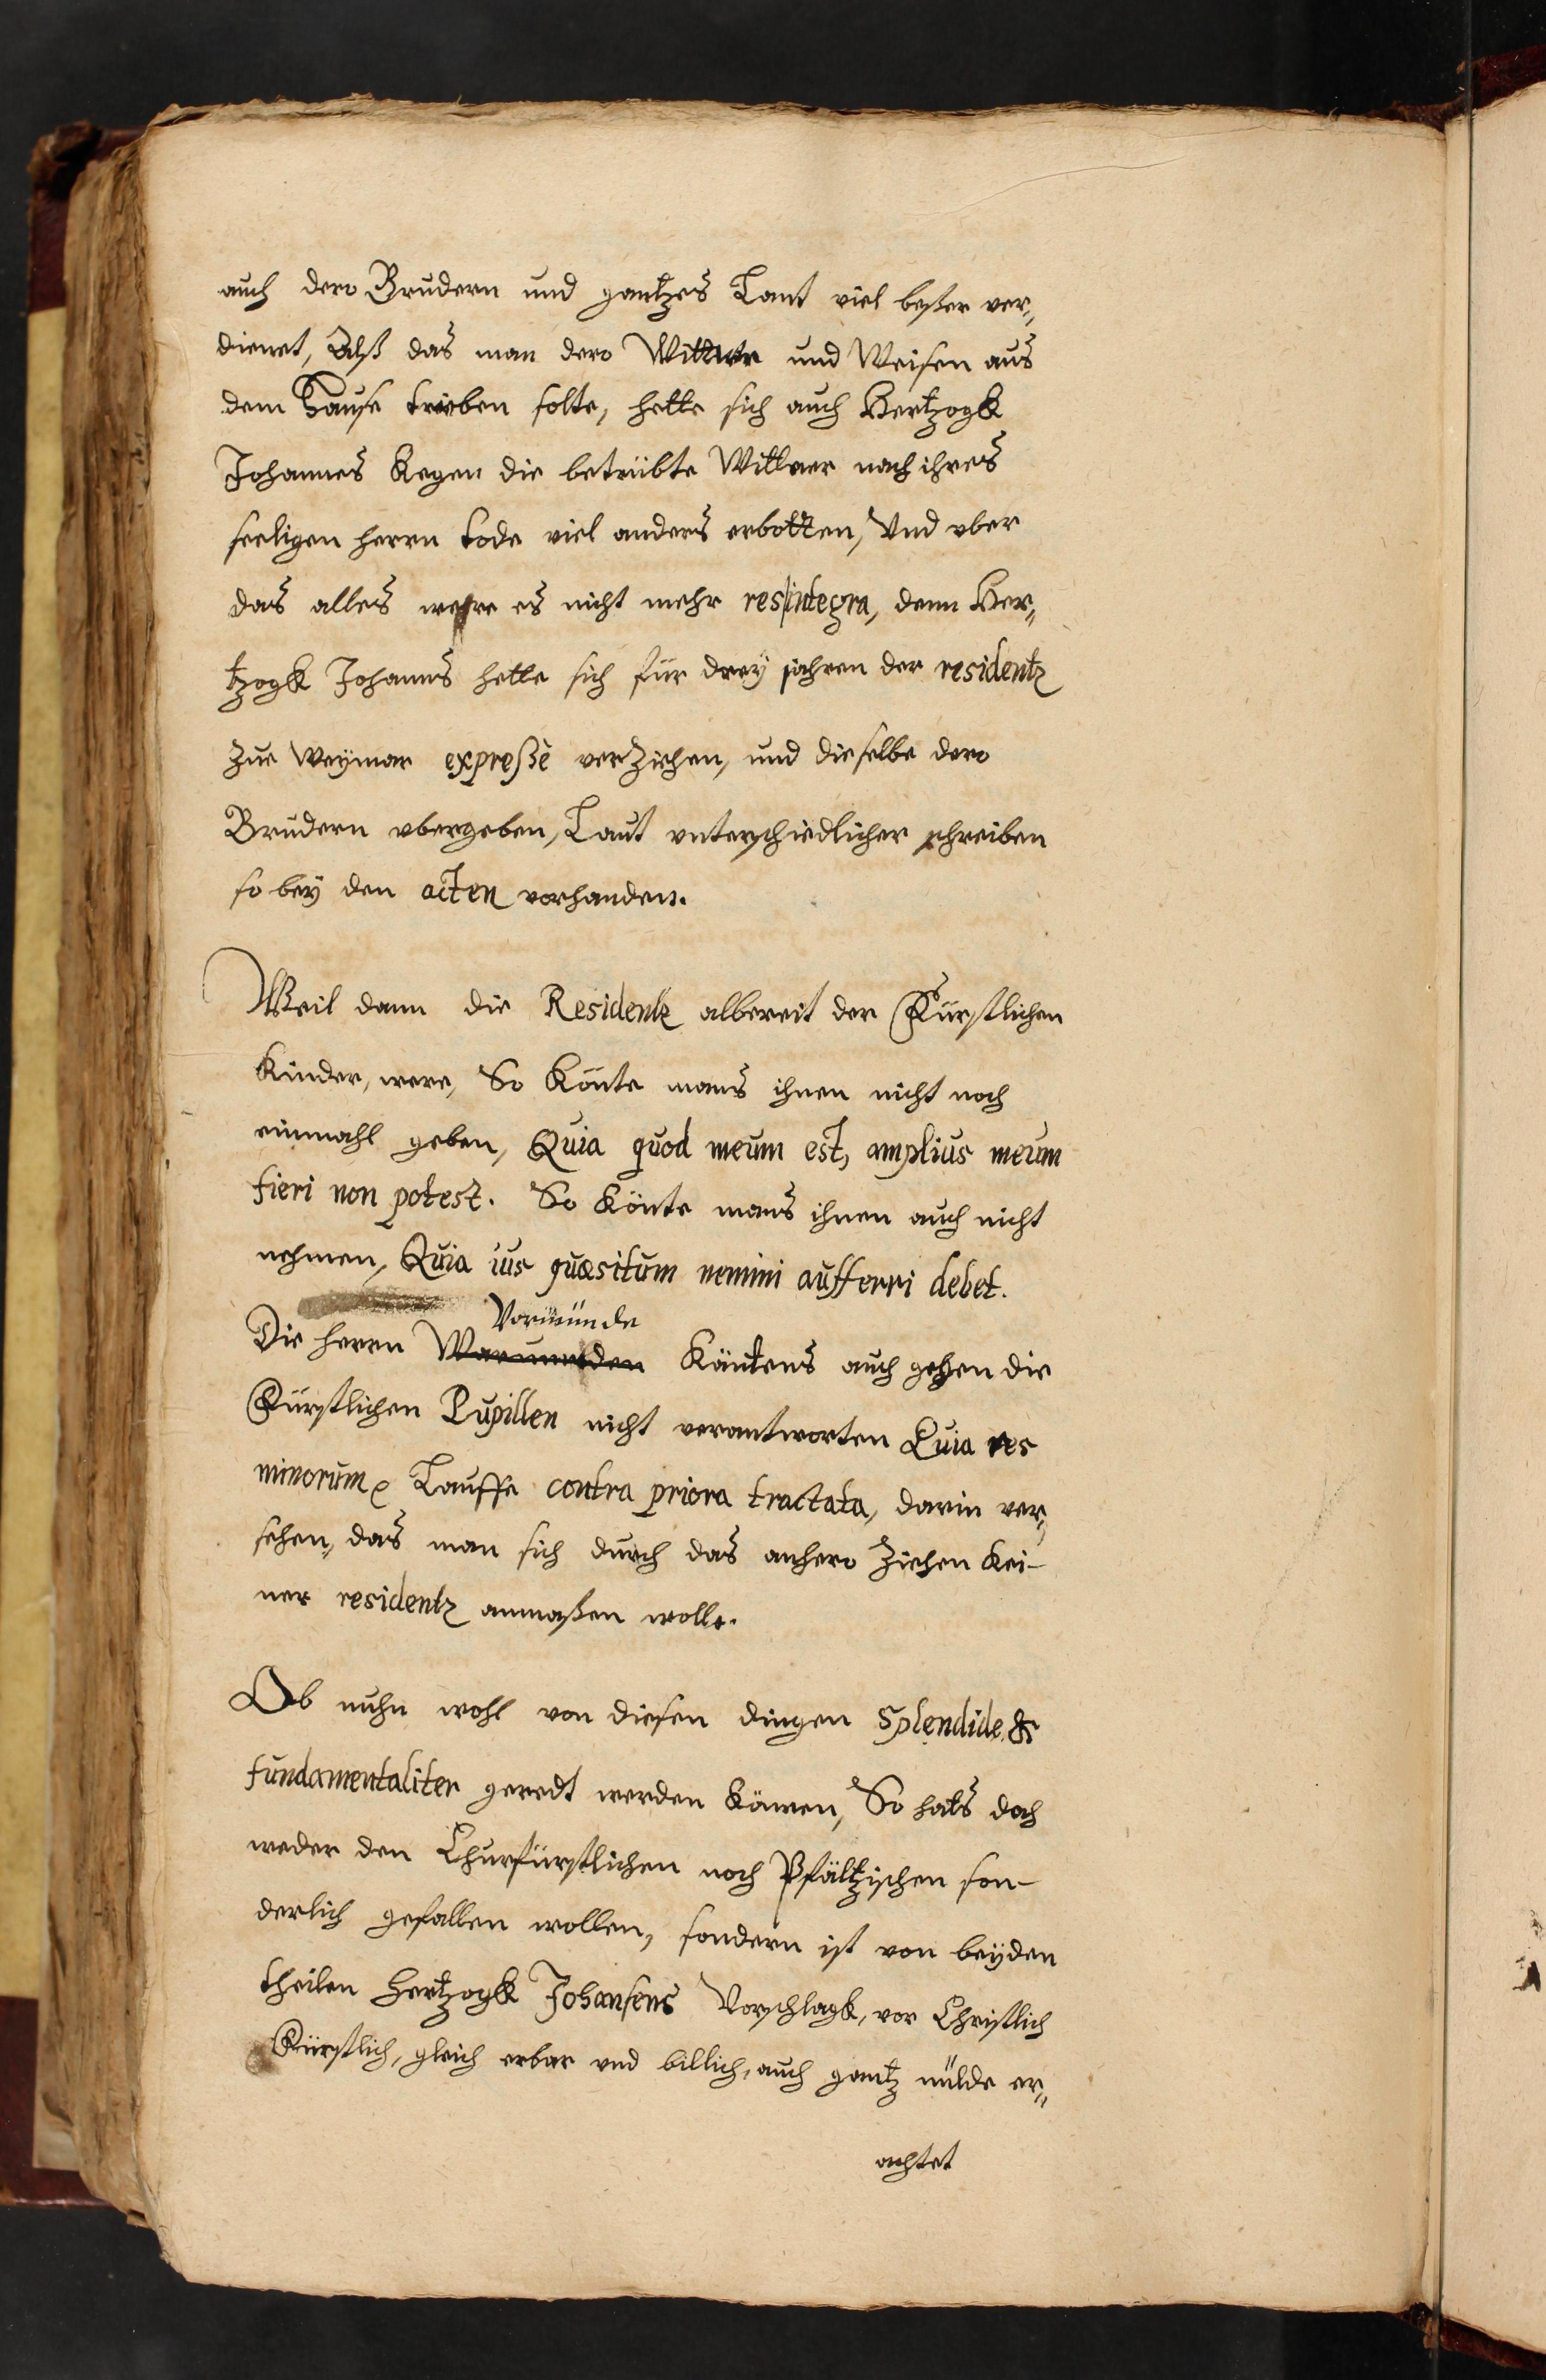 auch dero Brudern und gantzes Lant viel beßer ver„
dienet, Alß das man dero Wittwe und Weisen aus
dem Hause trieben solte, hette sich auch Hertzogk
Johannes kegen die betrübte Witwer nach ihres
seeligen herrn tode viel anders erbotten, Vnd vber
das alles were es nicht mehr res integra, denn Her„
tzogk Johanns hette sich für dreÿ jahren der residentz
zue Weÿmar expreßè verziehen, und dieselbe dero
Brudern vbergeben, Laut vnterschiedlicher schreiben
so beÿ den acten vorhanden.
Weil dann die Residentz albereit der Fürstlichen
Kinder, were, So könte mans ihnen nicht noch
einmahl geben, Quia quod meum est, amplius meum
fieri non potest. So könte mans ihnen auch nicht
nehmen, Quia ius quæsitum nemini aufferri debet.
Vormünde
Die herrn Warumbden köntens auch gehen die
Fürstlichen Pupillen nicht verantworten Quia res
minorum Lauffe contra priora tractata, darin ver„
sehen, das man sich durch das anhero ziehen kei-
ner residentz anmaßen wolle.
Ob nuhn wohl von diesen dingen splendide &
fundamentaliter geredt werden können, So hats doch
weder den Churfürstlichen noch Pfältzischen son-
derlich gefallen wollen, sondern ist von beÿden
theilen Hertzogk Johansens Vorschlagk, vor Christlich
Fürstlich, gleich erbar vnd billich, auch gantz milde er„
achtet